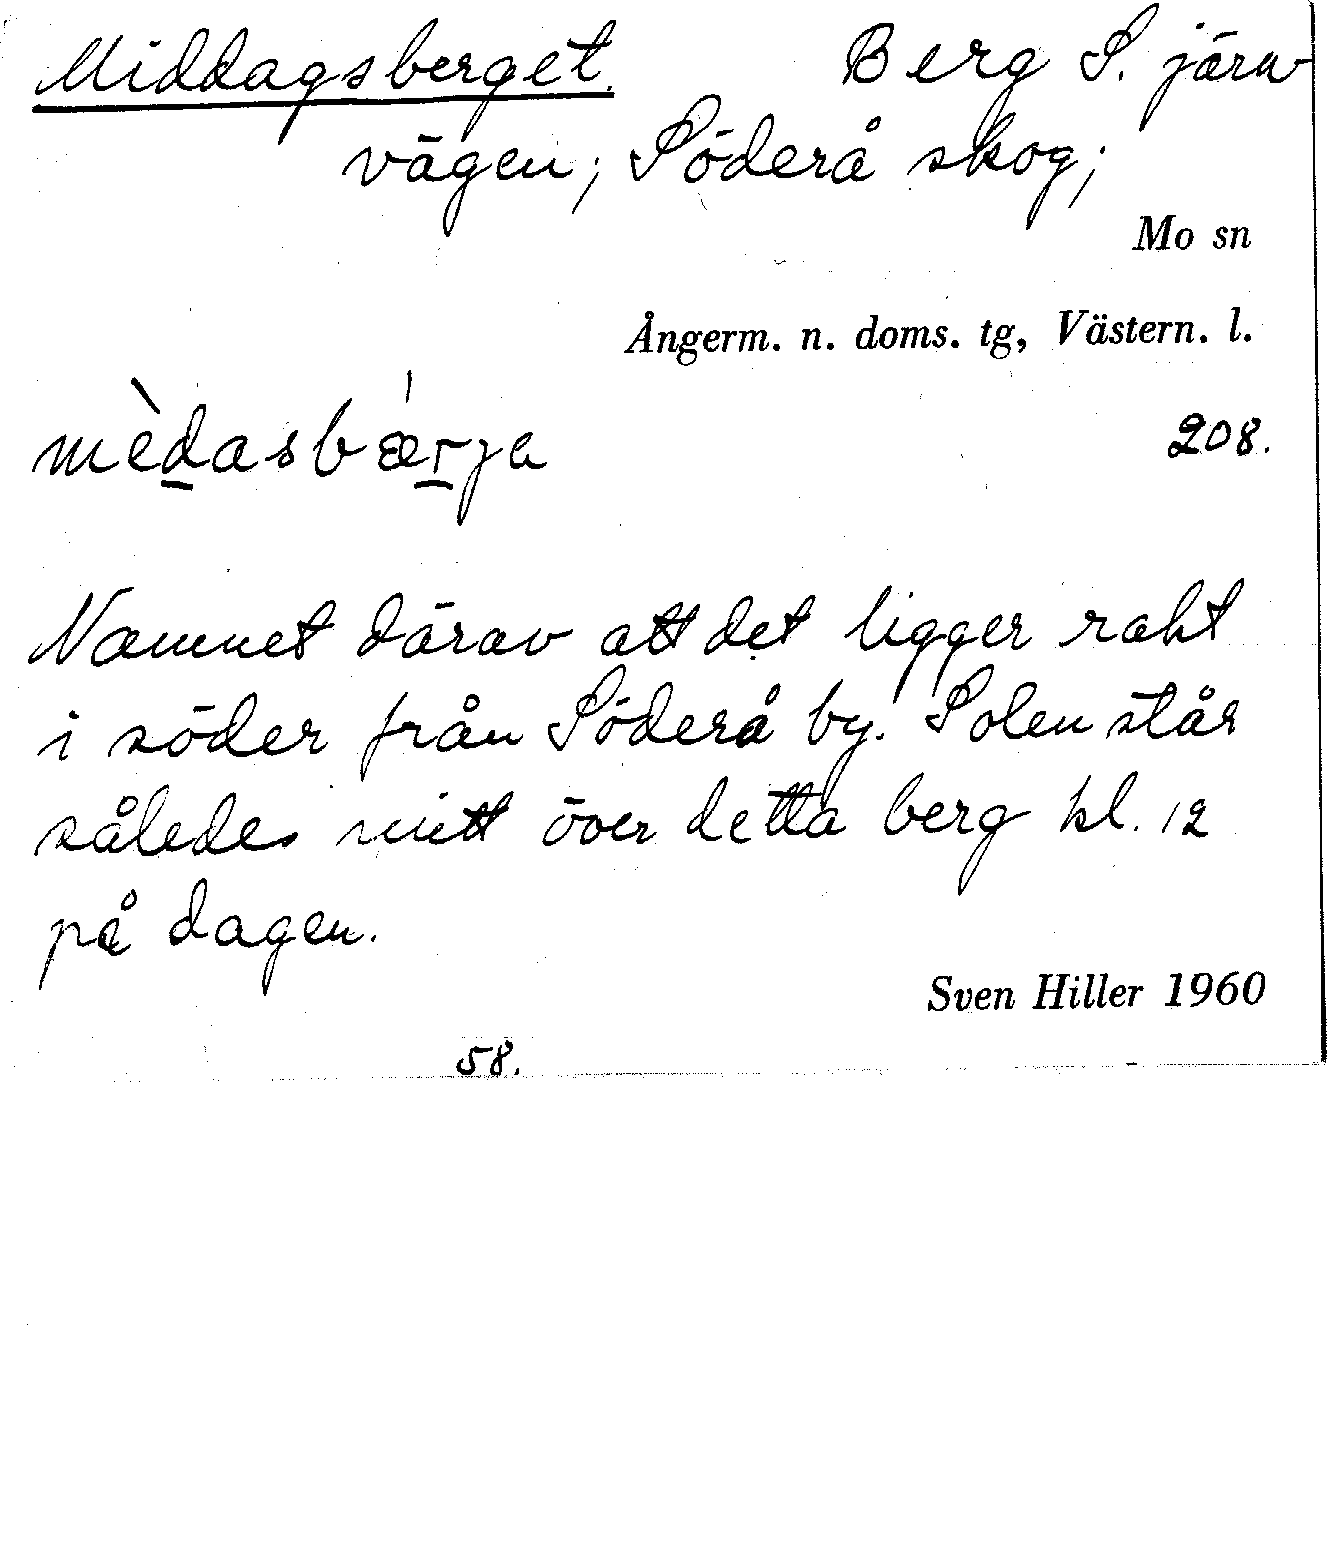 Middagsberget. Berg S. järn-
vägen; Söderå skog;
Mo sn
Ångerm. n. doms. tg, Västern. l.
mèdasbǽrja 208.
Namnet därav att det ligger rakt
i söder från Söderå by. Solen står
således mitt över detta berg kl. 12
på dagen.
Sven Hiller 1960
58.